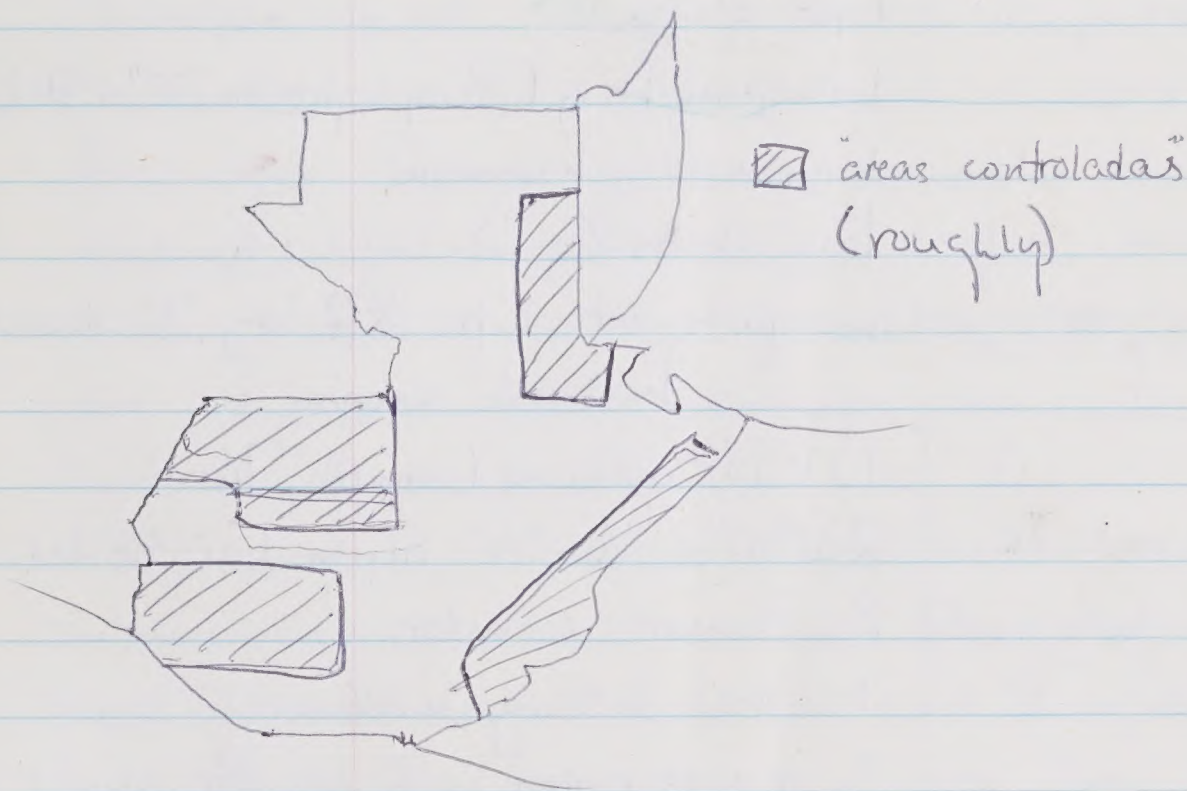 "areas controladas"
(roughly)